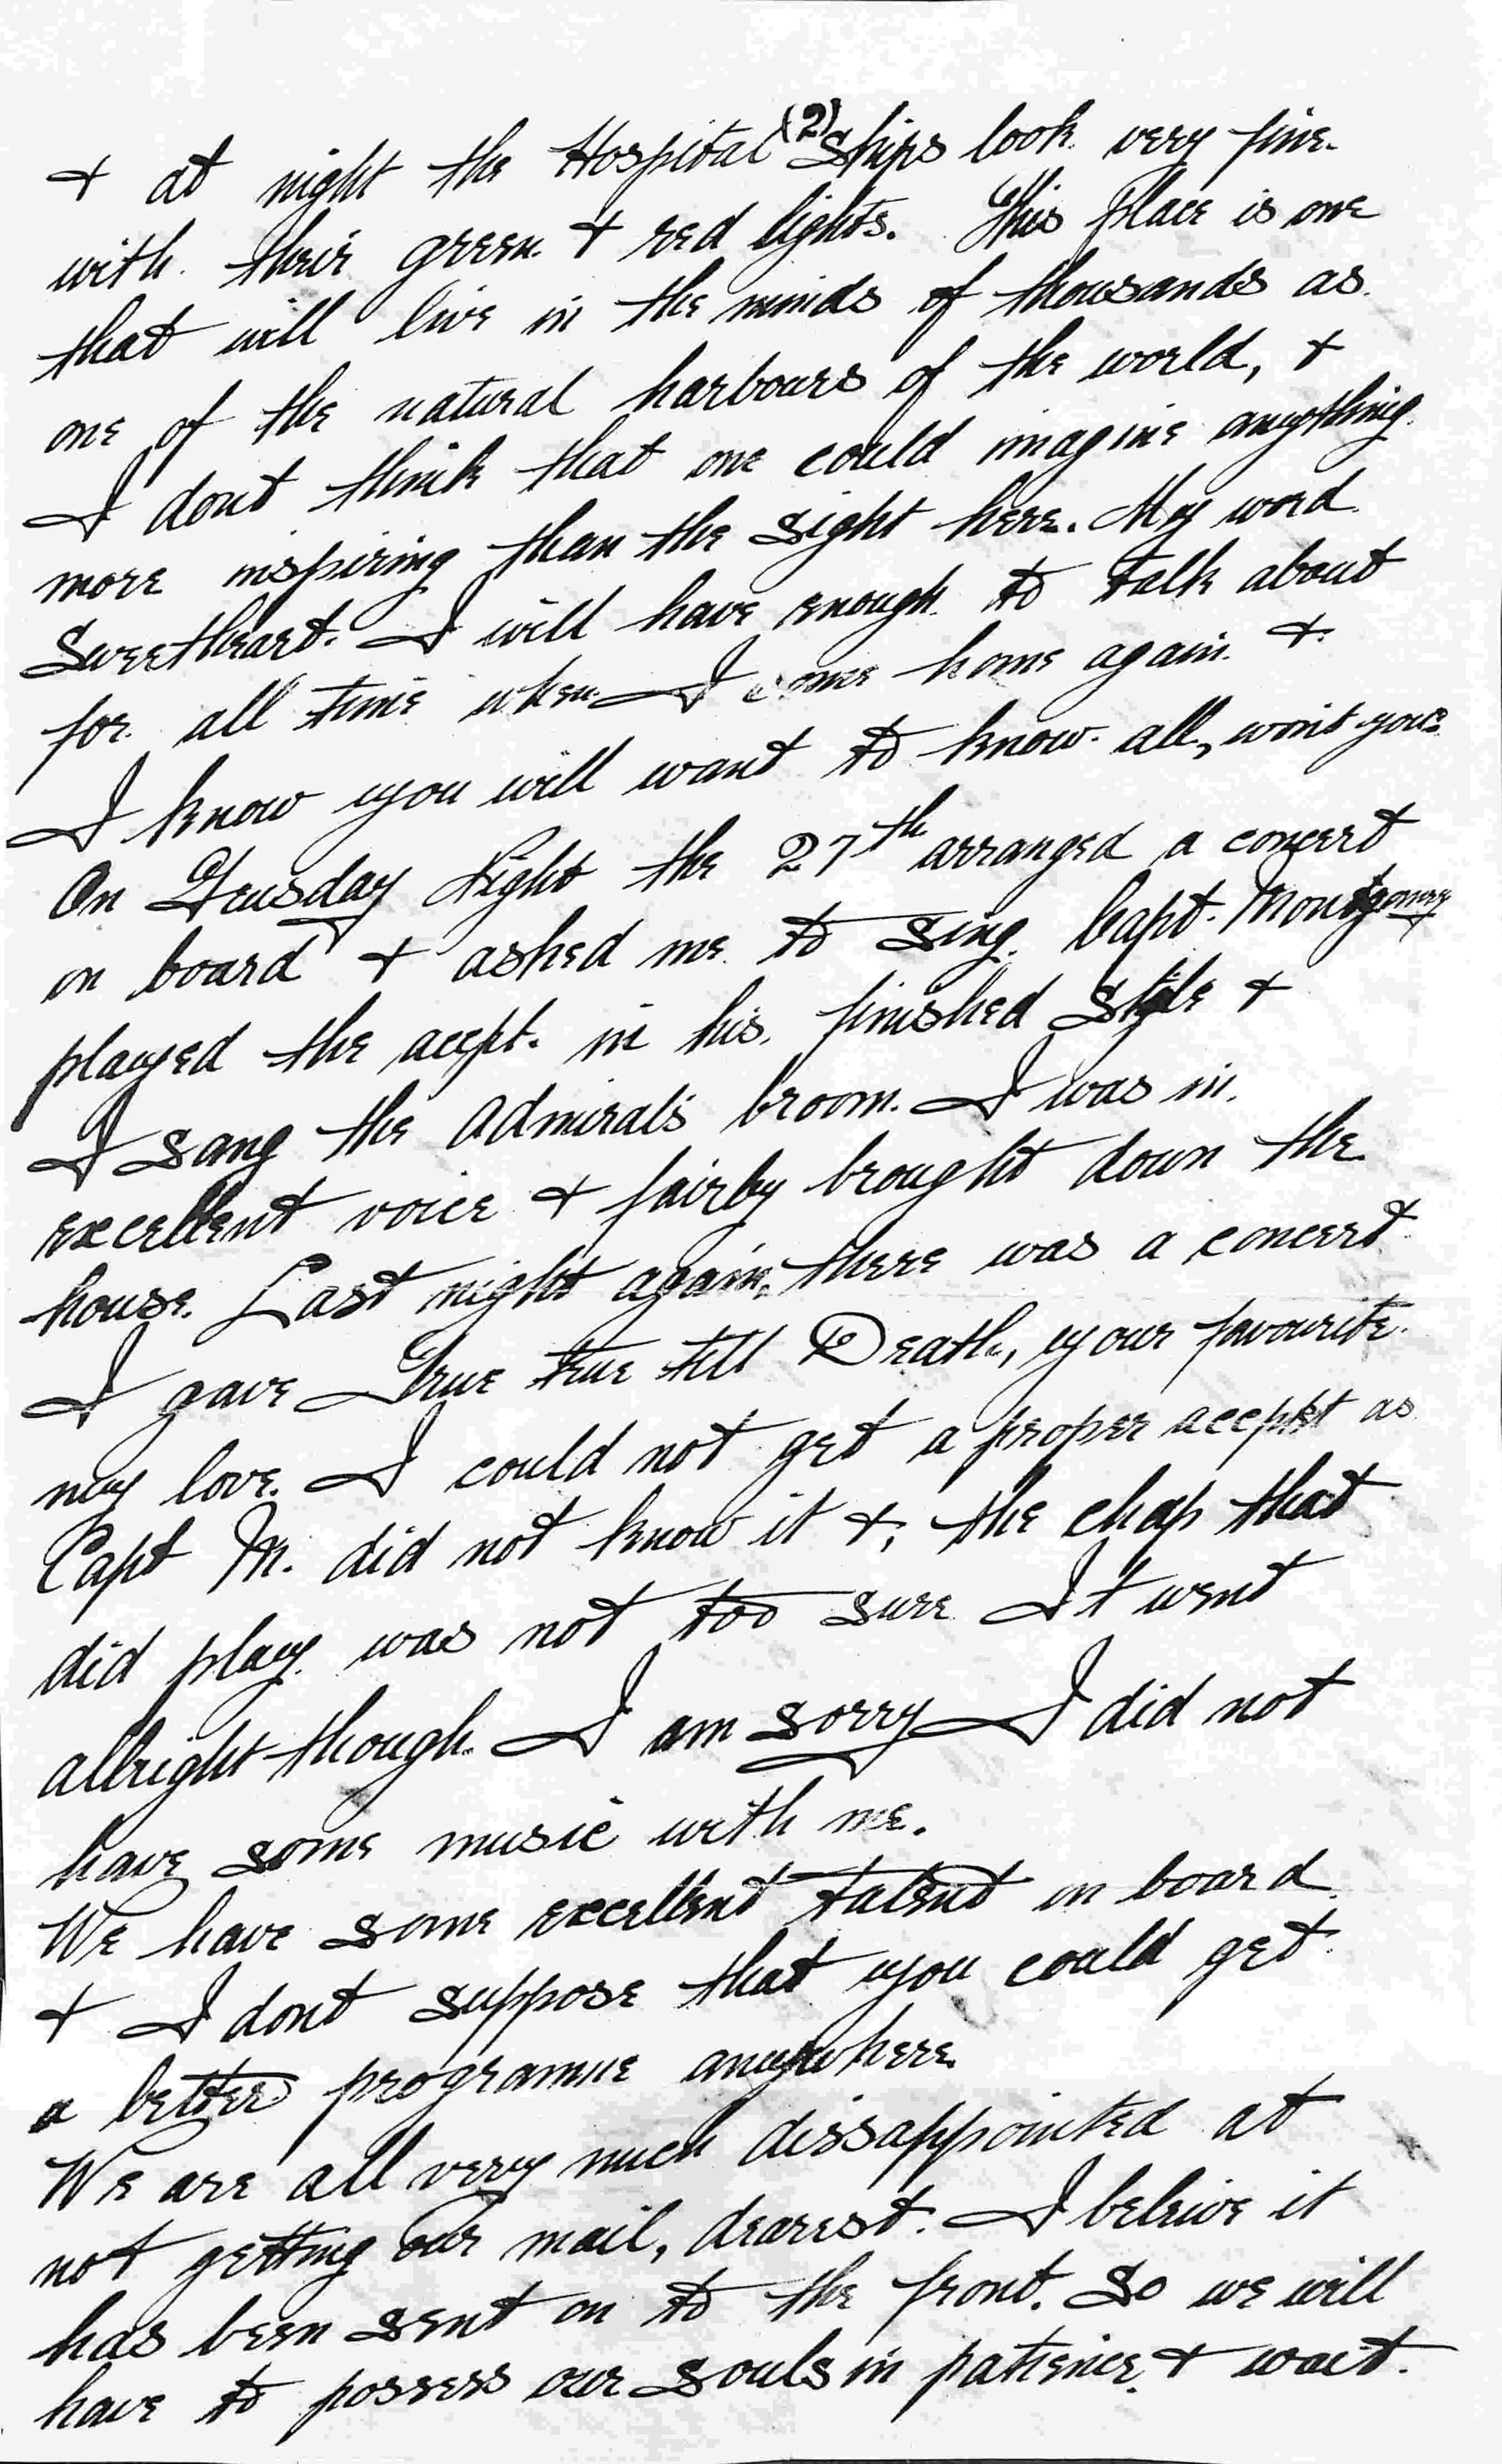 (2)
+ at night the Hospital Ships look very fine.
with their green + red lights. This place is one
that will live in the minds of thousands as
one of the natural harbours of the world, +
I dont think that one could imagine anything
more inspiring than the sight here. My word
Sweetheart. I will have enough to talk about
for all time when I come home again. +
I know you will want to know all, wont you?
On Teusday Night the 27th arranged a concert
on board + asked me to sing. Capt. Montgomery
played the accpt. in his finished style +
I sang the Admirals broom. I was in
excellent voice + fairby brought down the
house. Last night again, there was a concert
I gave True true till Death, your favourite
my love. I could not get a proper accpt as
Capt M. did not know it +, the chap that
did play was not too sure It went
allright though. I am sorry I did not
have some music with me.
We have some excellent talent on board
+ I dont suppose that you could get
a better programme anywhere.
We are all very much dissappointed at
not getting our mail, dearest. I beleive it
has been sent on to the front. So we will
have to possess our souls in patience, + wait.